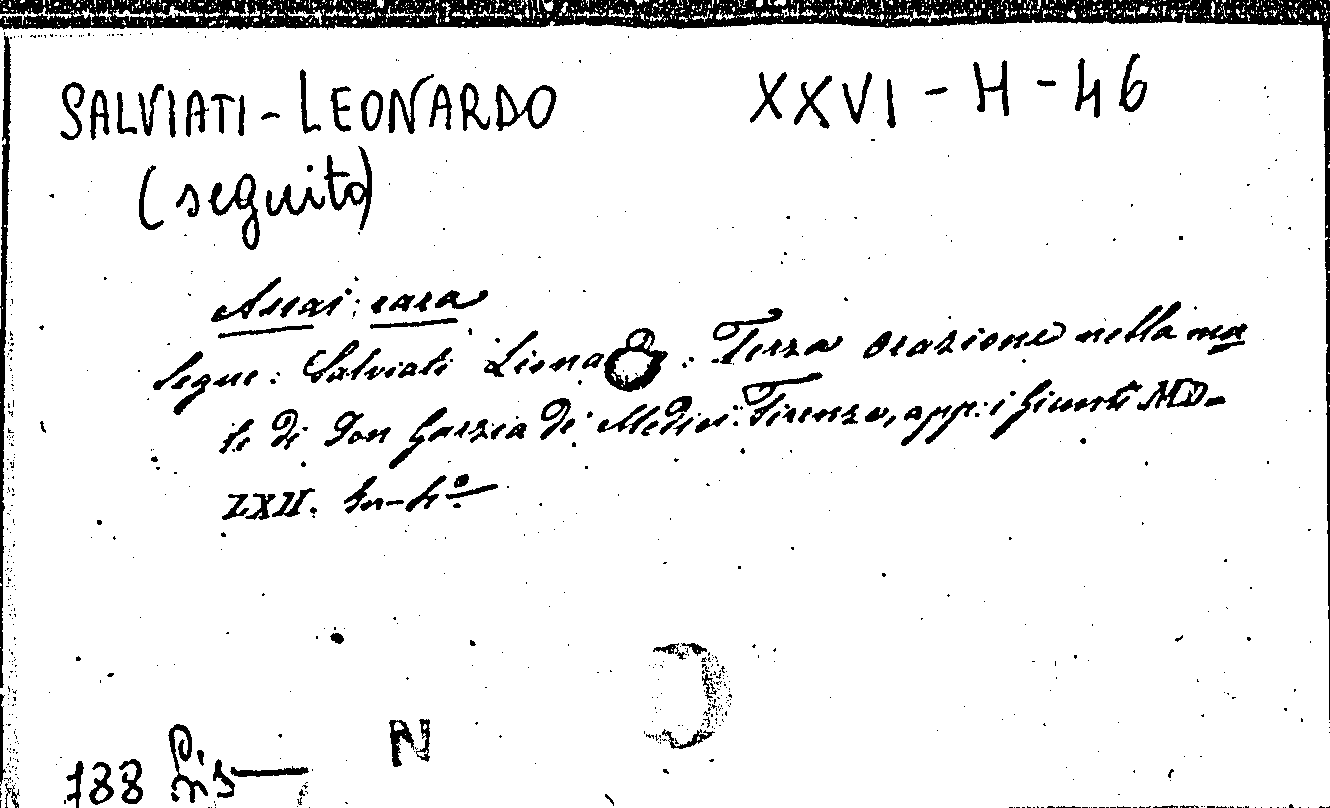 SALVIATI - LEONARDO XXVI - H - 46
(seguito)
Assai rara
Segue: Salviati Liona : Terza orazione nella mor
te di Don Garzia de' Medici. Firenze, app: i Giunti MD-
LXII. In-4°
188
N